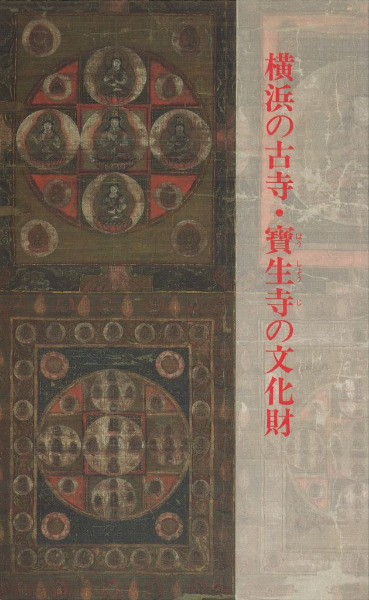 横浜の古寺・寳生寺の文化財
ほうしょうじ